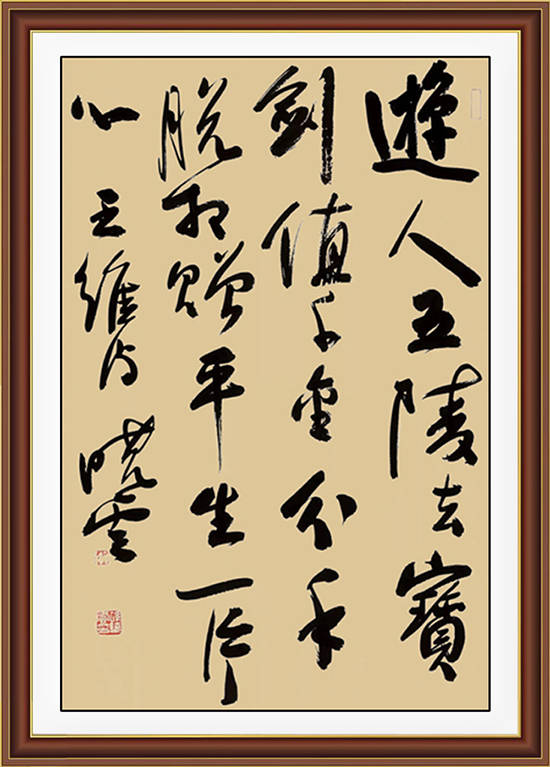 遊人五陵去寶
劍值千金分手
脱相贈平生一片
心 王維詩 曉雲